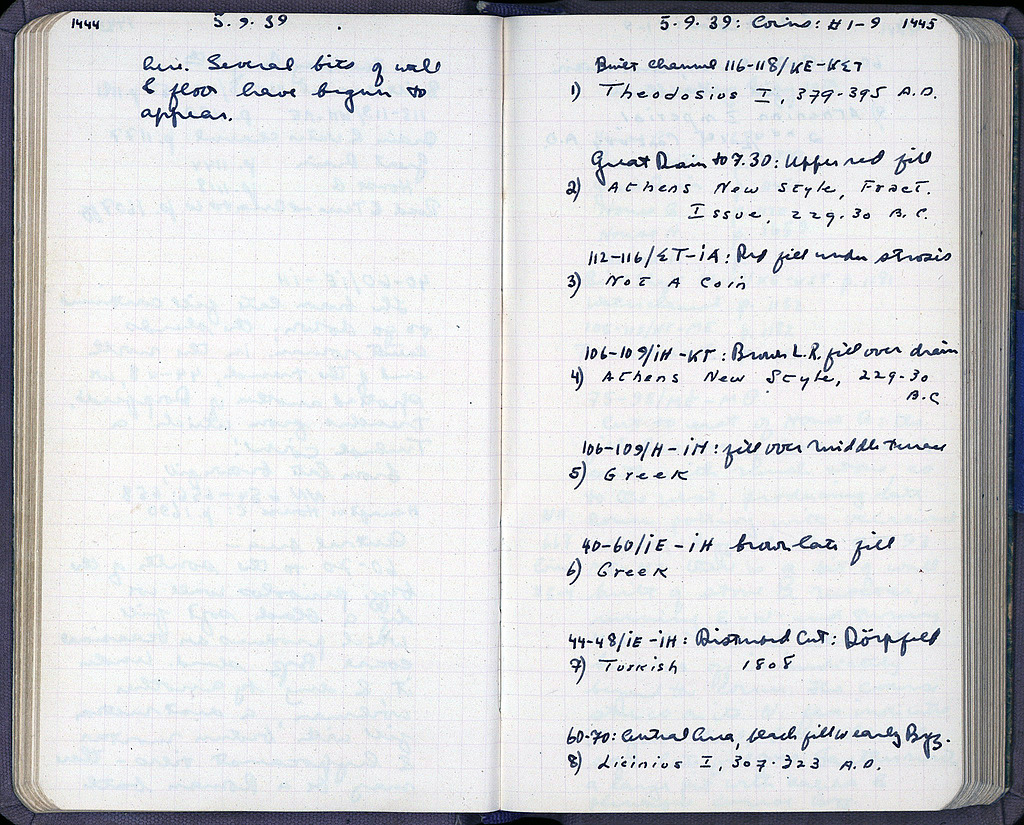 1444 5.9.39
here. Several bits of wall
& floor have begun to
appear.
5.9.39: Coins: #1-9 1445
Built channel 116-118/KE-KΣT
1) Theodosius I, 379-395 A.D.
Great Drain to 7.30: Upper red fill
2) Athens New Style, Fract.
Issue, 229-30 B.C.
112-116/ΣT-iA: Red fill under strosis
3) Not A Coin
106-109/iH-KΓ: Brown L.R. fill over drain
4) Athens New Style, 229-30
B.C
106-109/H-iH: fill over middle terrace
5) Greek
40-60/iE-iH brown late fill
6) Greek
44-48/iE-iH: Disturbed Cut: Dörpfeld
7) Turkish 1808
60-70: Central Area, black fill w early Byz.
8) Licinius I, 307-323 A.D.